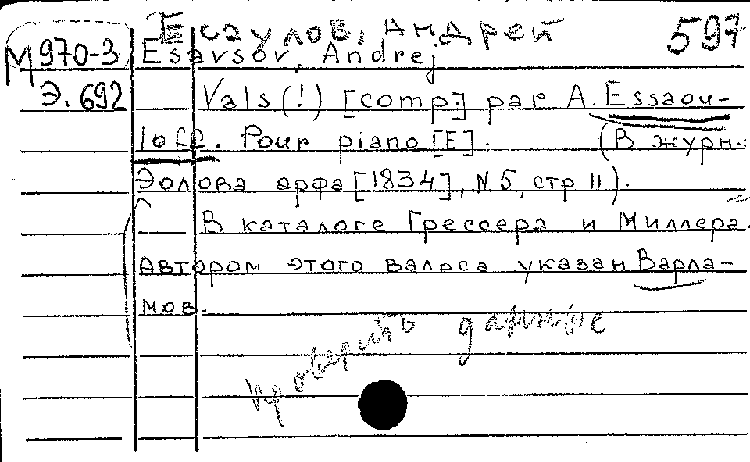 Есаулов, Андрей 597
М 970-3 Esavsov, Andrej
Э. 692 Vals (!) [comp.] par A. Essaou-
loff. Pour piano [E]. (В журн.
Эолова арфа [1834], N 5, стр 11).
В каталоге Грессера и Миллера
автором этого вальса указан Варла-
мов.
проверить данные